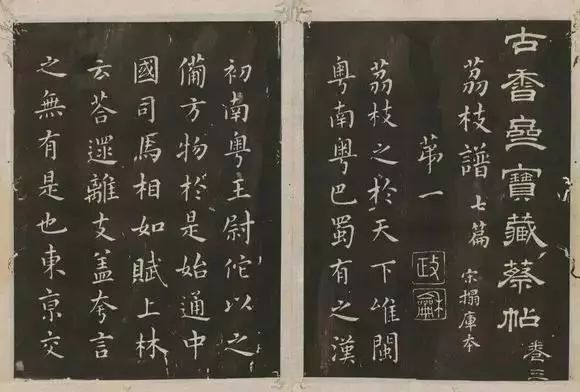 古香齋寶藏蔡帖 卷三
荔枝譜 七篇 宋搨庫本
第一
荔枝之於天下唯閩
粵南粵巴蜀有之漢
初南粵王尉佗以之
備方物於是始通中
國司馬相如賦上林
云荅遝離支盖夸言
之無有是也東京交